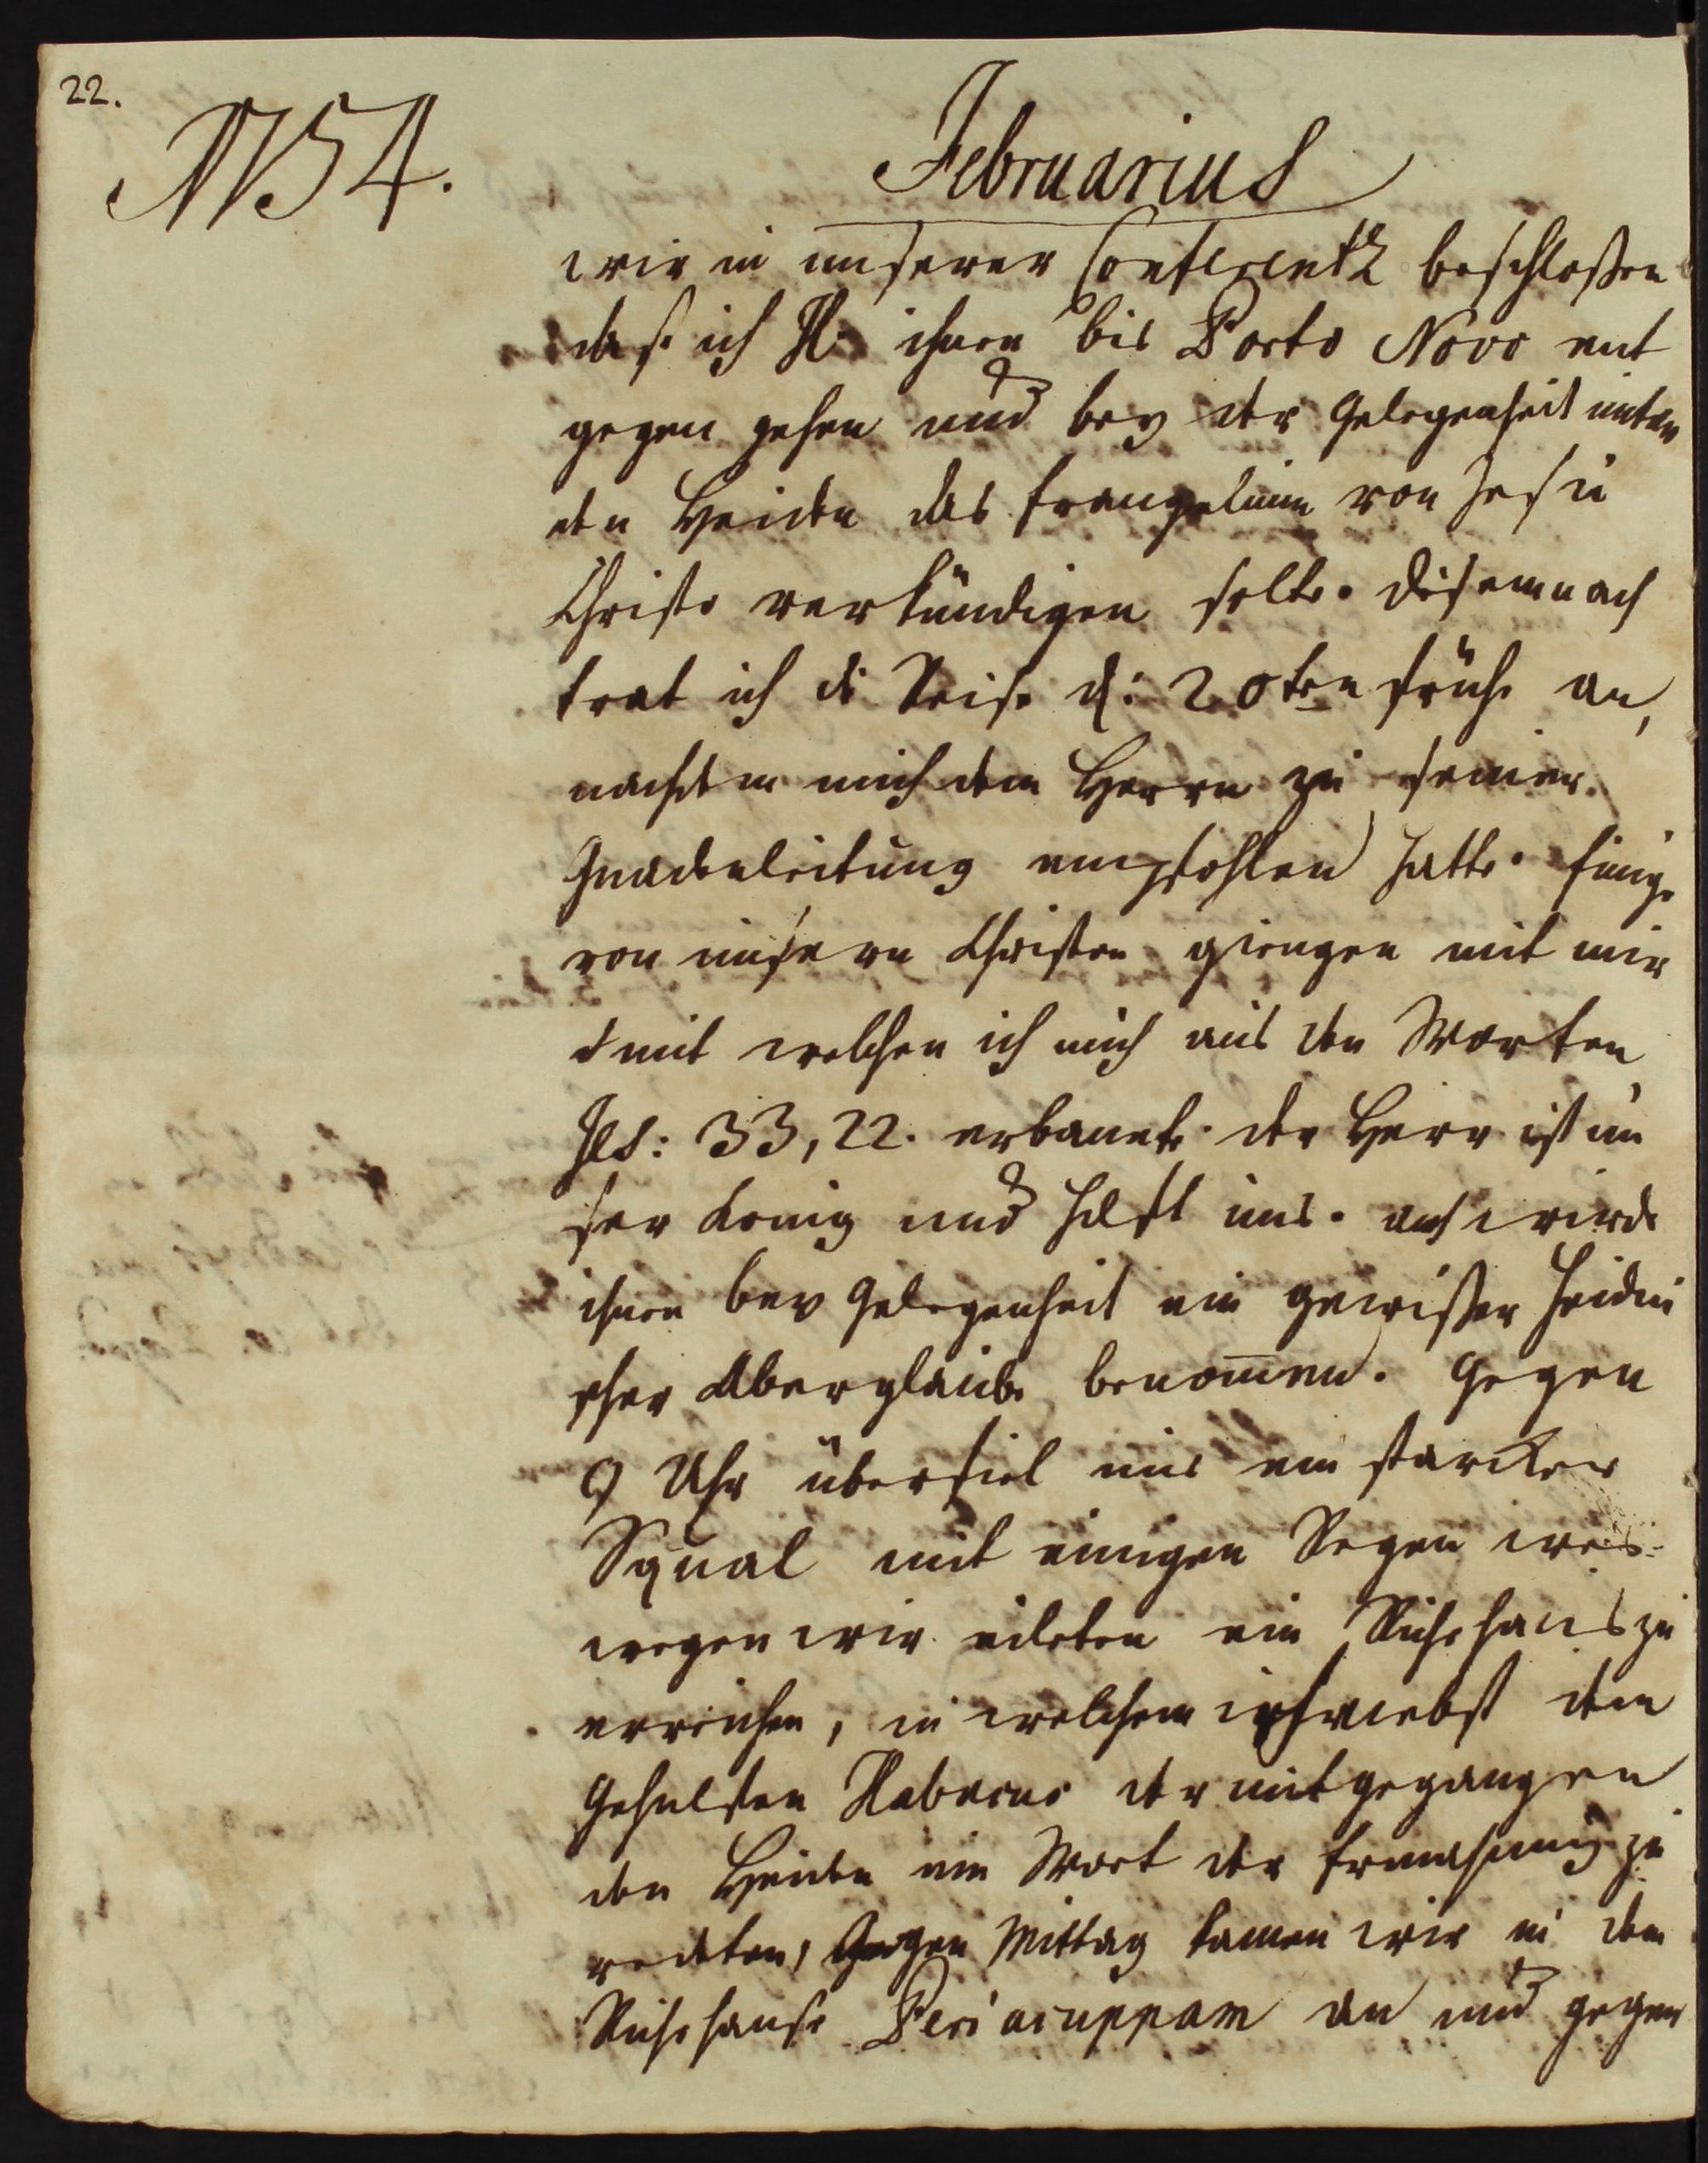 22.
1754.
Februarius
wir in unserer Conferentz beschloßen
daß ich H. ihnen bis Porto Novo ent
gegen gehen und bey der Gelegenheit unter
den Heiden das Evangelium von Jesu
Christo verkündigen solte. Disemnach
trat ich die Reise d: 20ten frühe an,
nachdem mich dem Herrn zu seiner
Gnadenleitung empfohlen hatte. Einige
von unsern Christen giengen mit mir
mit welchen ich mich aus den Worten
Jes: 33, 22. erbauete. der Herr ist un
ser König und hilft uns. auch wurde
ihnen bey Gelegenheit ein gewißer heidni
scher Aberglaube benom̅en. Gegen
9 Uhr überfiel uns ein starcker
Squal mit einigen Regen wes-
wegen wir eileten ein Ruhehaus zu
erreichen, in welchem ich nebst dem
Gehülfen der mitgegangen
den Heiden ein Wort der Ermahnung zu
redeten, Gegen Mittag kamen wir in dem
Ruhehause Periacuppam an und gegen